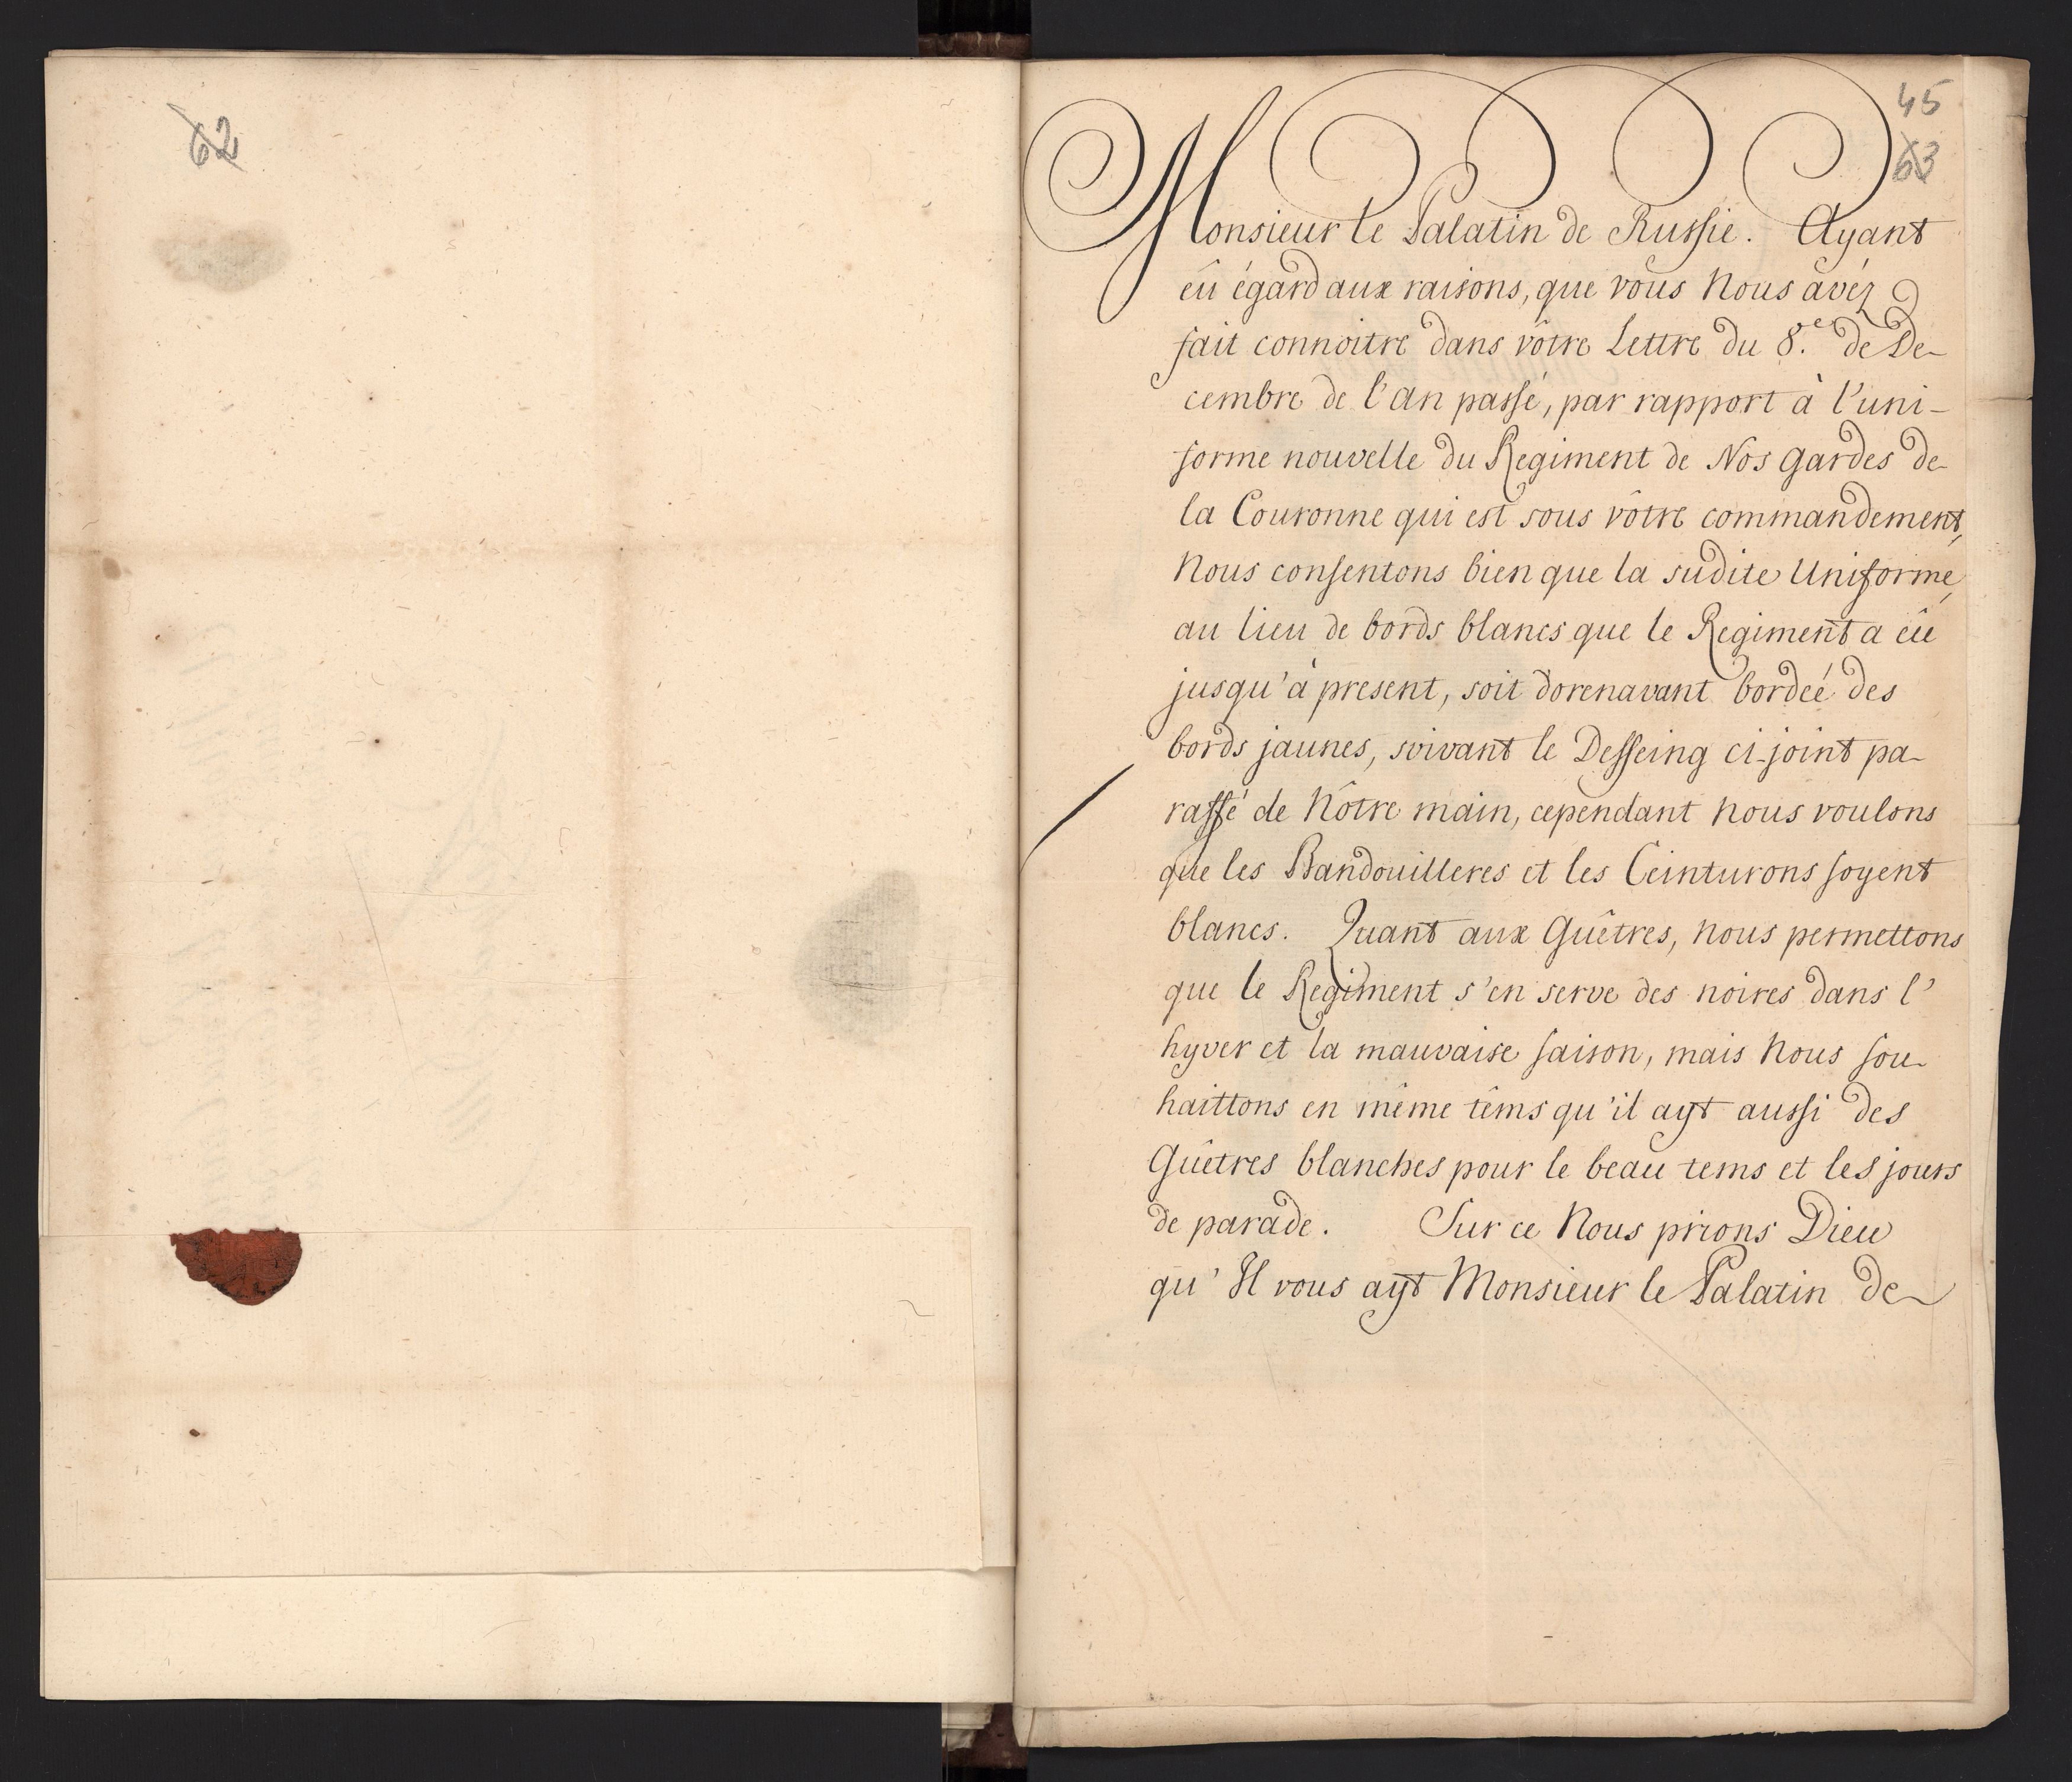 62
45
63
Monsieur le Palatin de Russie. Ayant
êû égard aux raisons, que vous Nous avéz
fait connoitre dans vôtre Lettre du 8.e de De-
cembre de l'an passé, par rapport à l'uni-
forme nouvelle du Regiment de Nos gardes de
la Couronne qui est sous vôtre commandement,
Nous consentons bien que la sudite Uniforme,
au lieu de bords blancs que le Regiment a êû
jusqu'à present, soit dorenavant bordeé des
bords jaunes, suivant le Desseing ci-joint pa-
raffé de Nôtre main, cependant Nous voulons
que les Bandouilleres et les Ceinturons soyent
blancs. Quant aux Guêtres, Nous permettons
que le Regiment s'en serve des noires dans l'
hyver et la mauvaise saison, mais Nous sou-
haittons en même têms qu'il ayt aussi des
Guêtres blanches pour le beau tems et les jours
de parade. Sur ce Nous prions Dieu
qu'Il vous ayt Monsieur le Palatin de